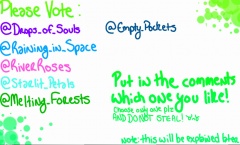 Please Vote:
@Drops_of_Souls
@Raining_in_Space
@RiverRoses
@Starlit_Petals
@Melting_Forests
@Empty_Pockets
Put in the comments
which one you like!
Choose only one plz
AND DO NOT STEAL!
note this will be explained later